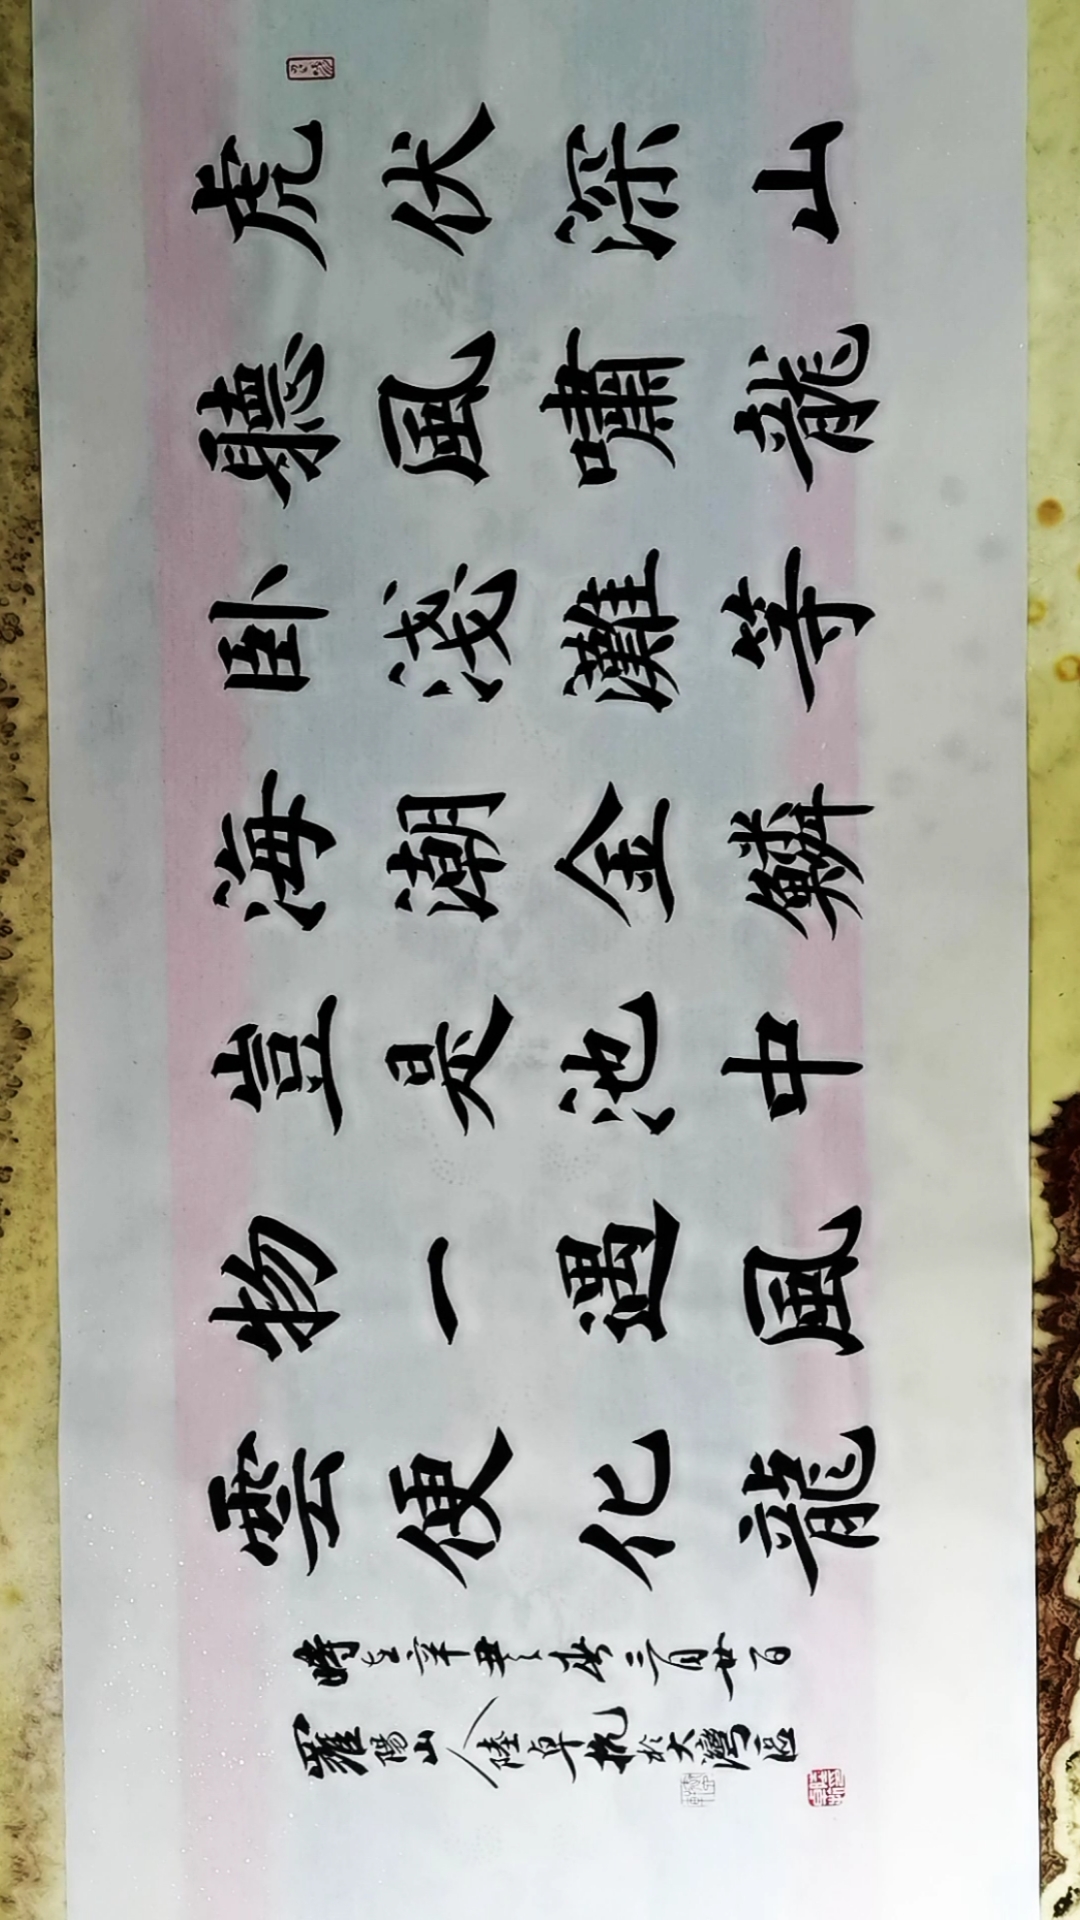 虎伏深山
聽風嘯龍
臥淺灘等
海潮金鱗
豈是池中
物一遇風
雲便化龍
時在辛丑之春三月廿日
羅陽山人陸卓於大灣區